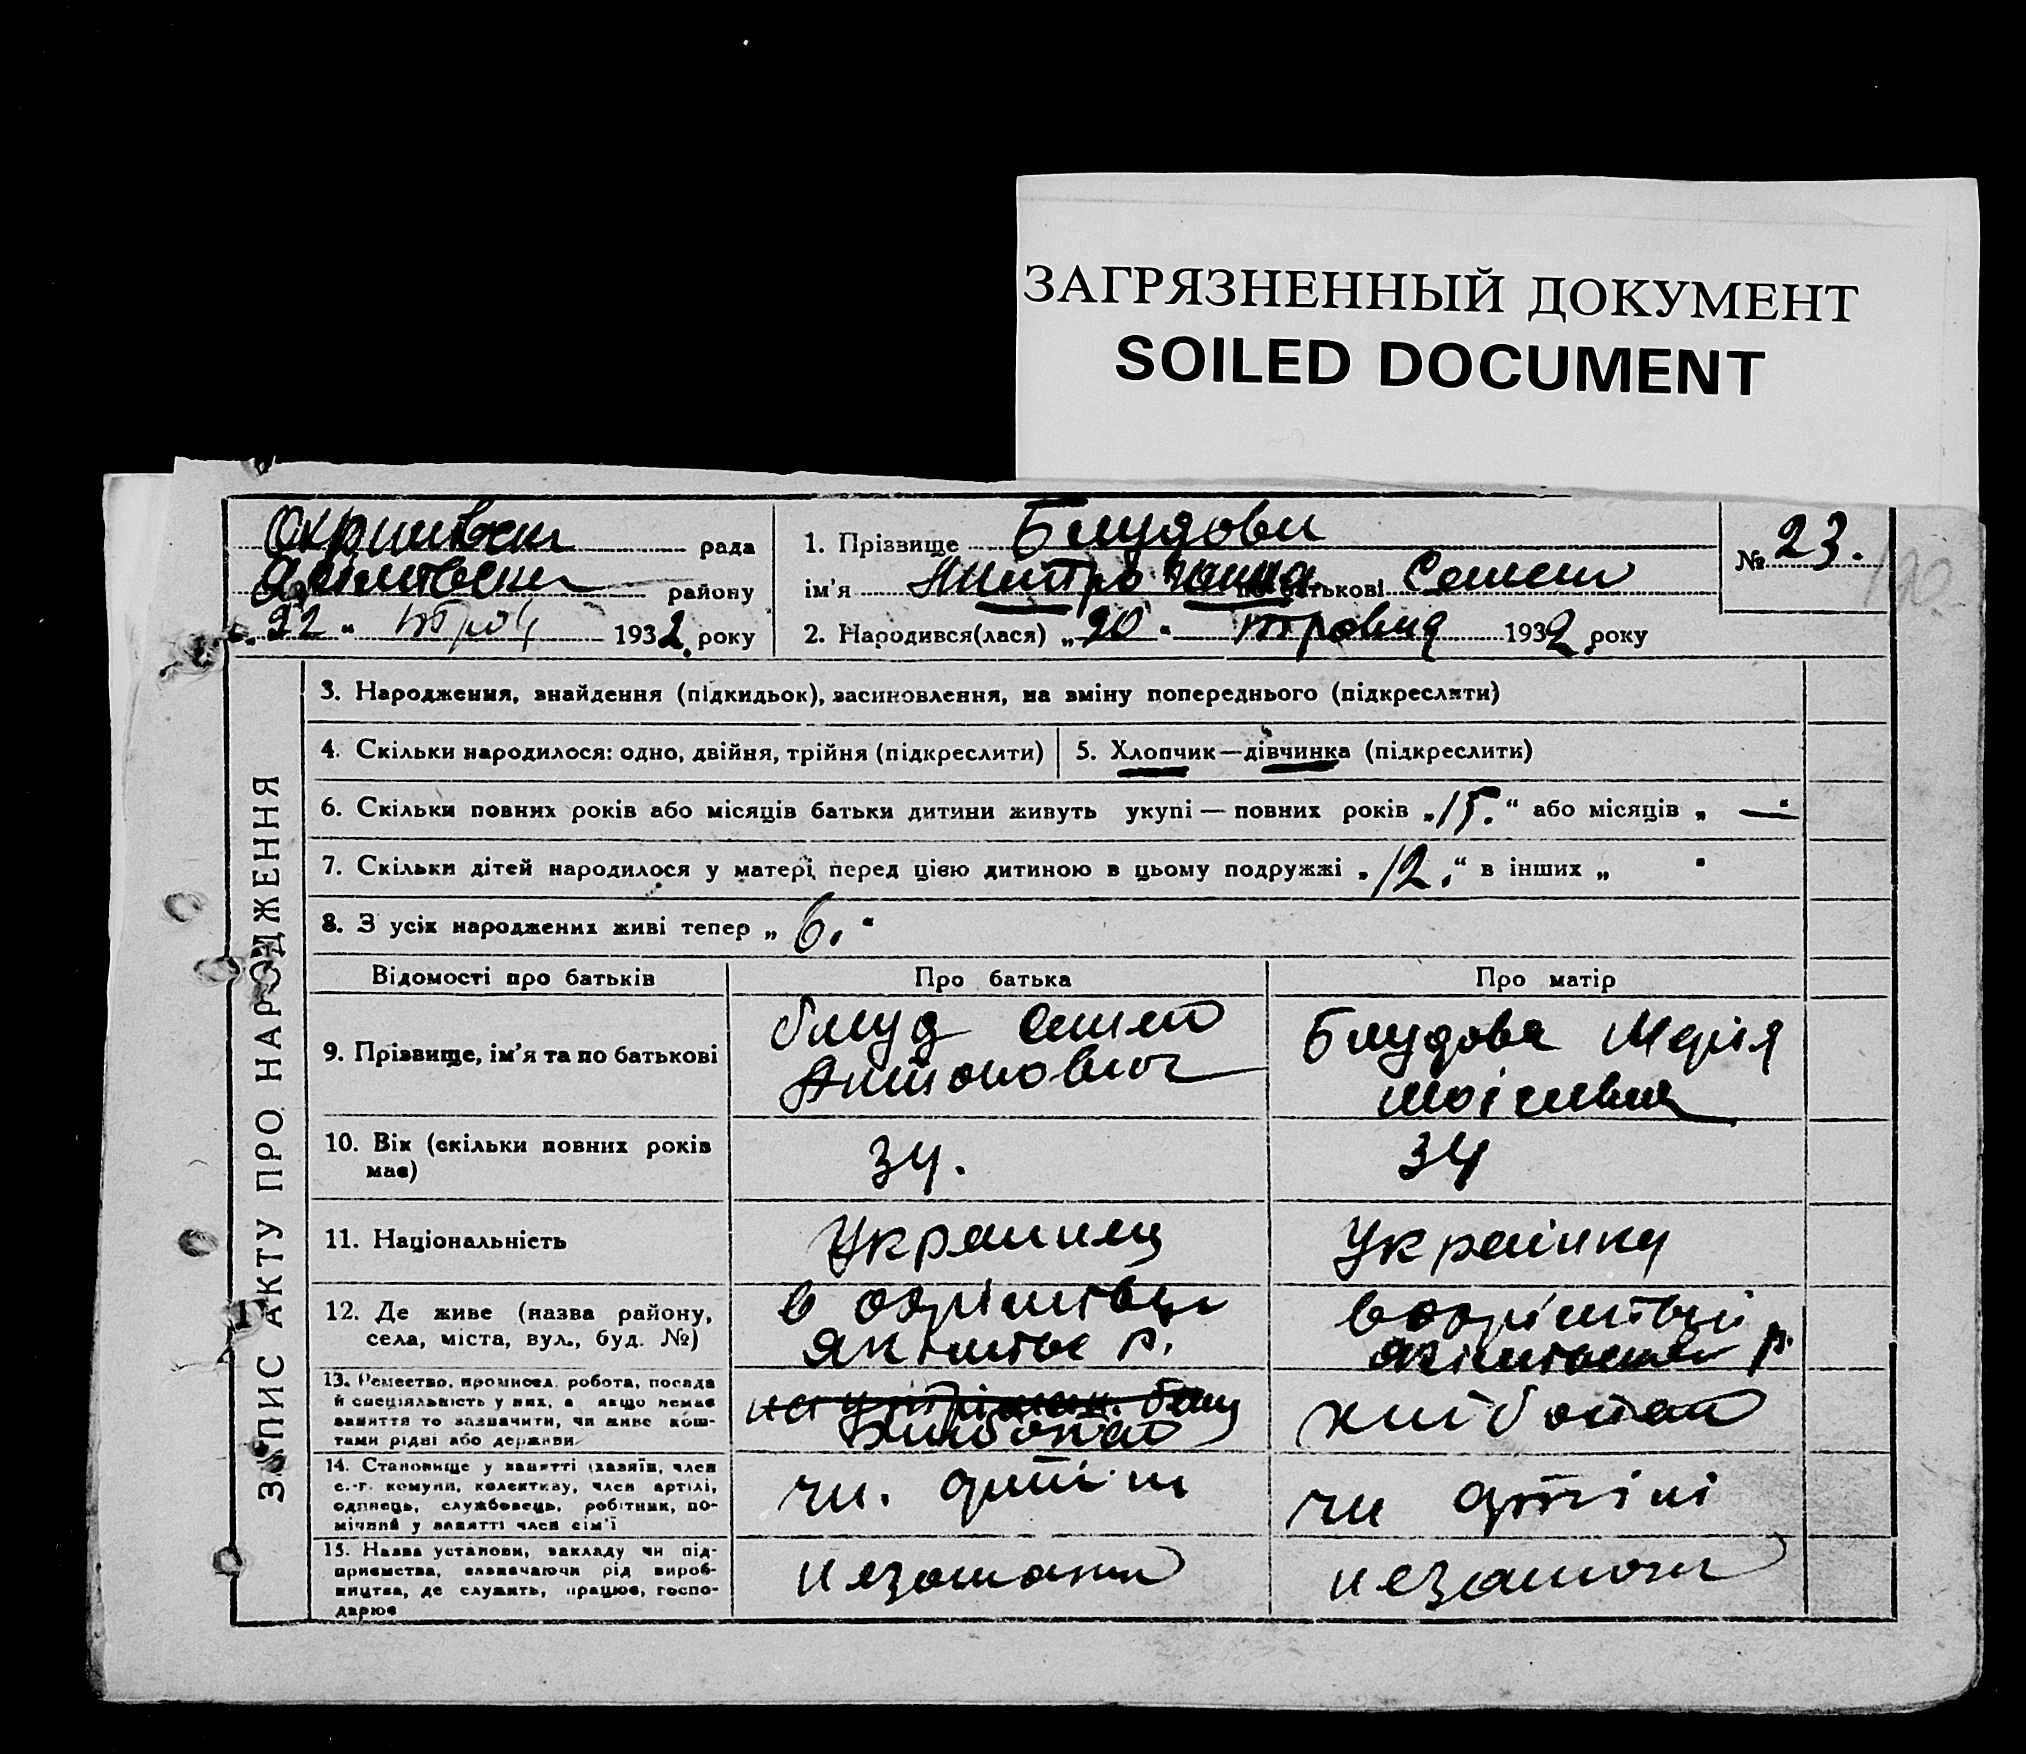 ЗАГРЯЗНЕННЫЙ ДОКУМЕНТ
SOILED DOCUMENT
рада
району
22 " 1932 року
1. Прізвище Блудови
ім'я Дмитро Ганна по батькові Семен
2. Народився(лася) „20" травня 1932 року
№ 23.
ЗАПИС АКТУ ПРО НАРОДЖЕННЯ
3. Народження, знайдення (підкидьок), засиновлення, на зміну попереднього (підкреслити)
4. Скільки народилося: одно, двійня, трійня (підкреслити)
5. Хлопчик—дівчинка (підкреслити)
6. Скільки повних років або місяців батьки дитини живуть укупі — повних років „15." або місяців „ — "
7. Скільки дітей народилося у матері перед цією дитиною в цьому подружжі „12." в інших „ "
8. З усіх народжених живі тепер „6."
Відомості про батьків
Про батька
Про матір
9. Прізвище, ім'я та по батькові
Блуд Семен
Антонович
Блудова Марія
Моісеївна
10. Вік (скільки повних років
має)
34.
34
11. Національність
Украинец
Українка
12. Де живе (назва району,
села, міста, вул., буд. №)
в
р.
р.
13. Ремество, промисел, робота, посада
й спеціяльність у них, а якщо немає
заняття то зазначити, чи живе кош-
тами рідні або держави
хлібороб
14. Становище у занятті (хазяїн, член
с.-г. комуни, колективу, член артілі,
одинець, службовець, робітник, по-
мічний у занятті член сім'ї
чл. артілі
чл артілі
15. Назва установи, закладу чи під-
приємства, визначаючи рід вироб-
ництва, де служить, працює, госпо-
дарює
незаможн
незаможн